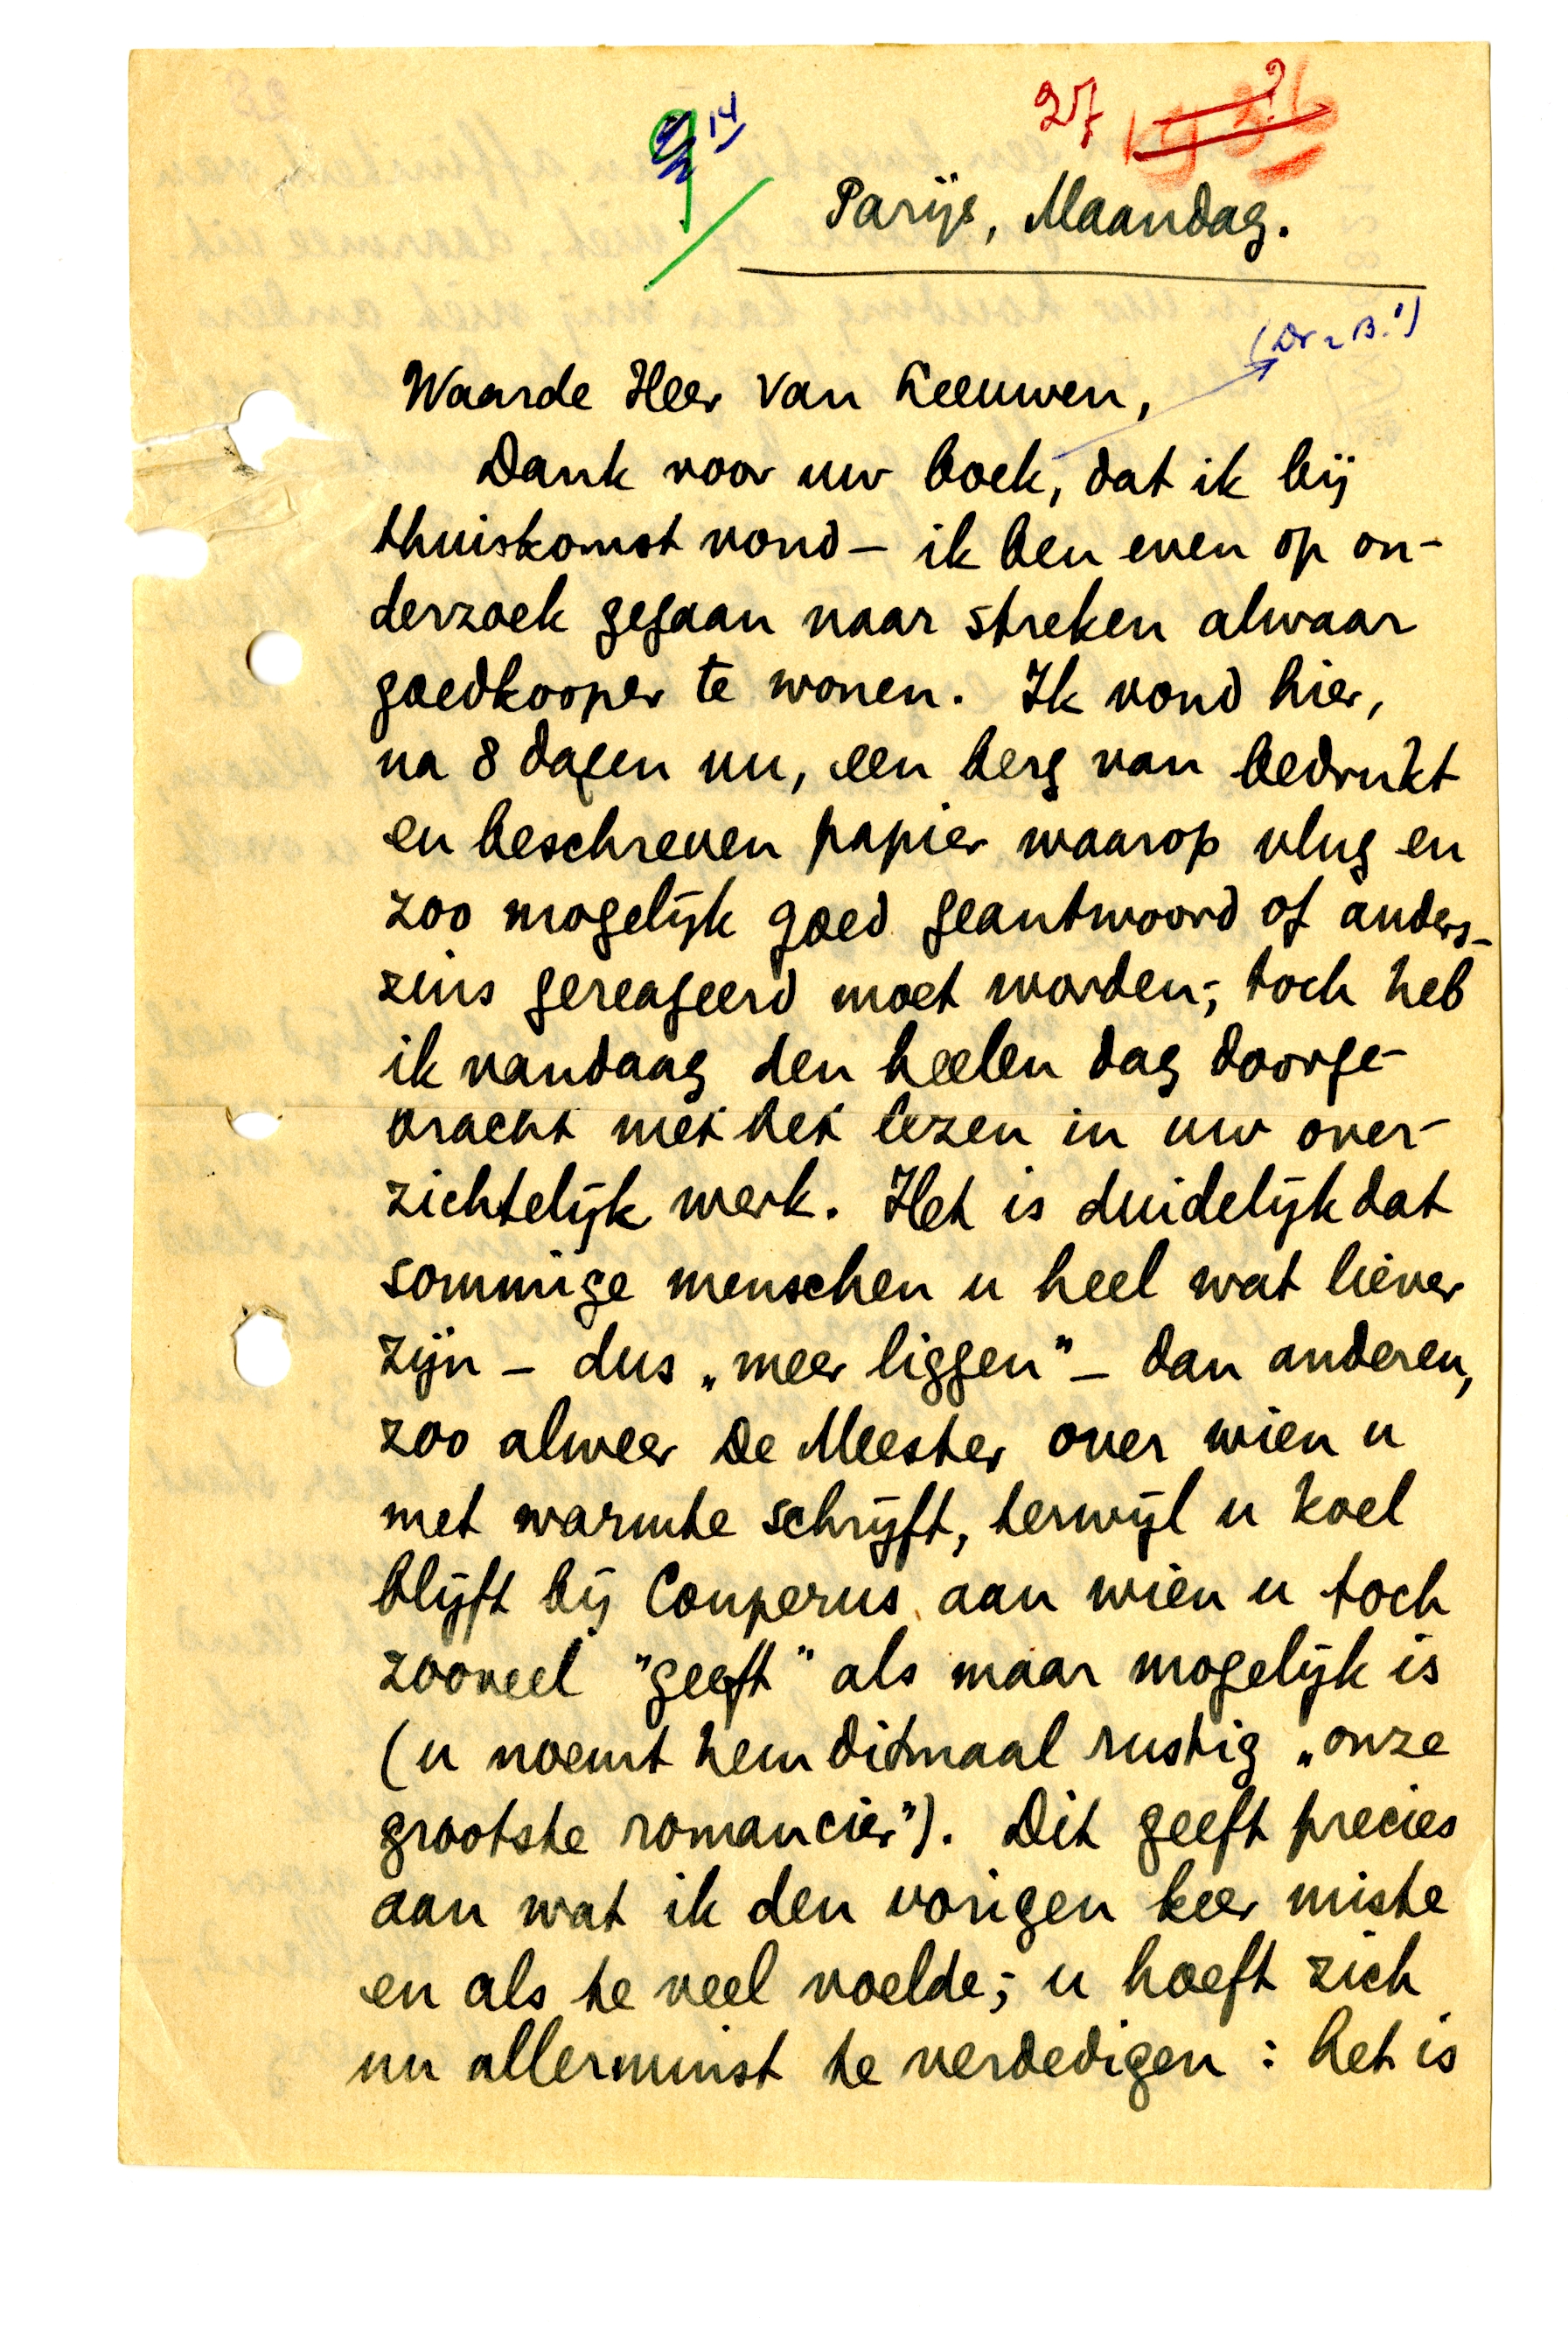 14
27
Parijs, Maandag.
(Dr. B.!)
Waarde Heer Van Leeuwen,
Dank voor uw boek, dat ik bij
thuiskomst vond – ik ben even op on-
derzoek gegaan naar streken alwaar
goedkooper te wonen. Ik vond hier,
na 8 dagen nu, een berg van bedrukt
en beschreven papier waarop vlug en
zoo mogelijk goed geantwoord of anders-
zins gereageerd moet worden; toch heb
ik vandaag den heelen dag doorge-
bracht met het lezen in uw over-
zichtelijk werk. Het is duidelijk dat
sommige menschen u heel wat liever
zijn – dus „meer liggen” – dan anderen,
zoo alweer De Meester over wien u
met warmte schrijft, terwijl u koel
blijft bij Couperus aan wien u toch
zooveel "geeft" als maar mogelijk is
(u noemt hem ditmaal rustig „onze
grootste romancier”). Dit geeft precies
aan wat ik den vorigen keer miste
en als te veel voelde; u hoeft zich
nu allerminst te verdedigen : het is